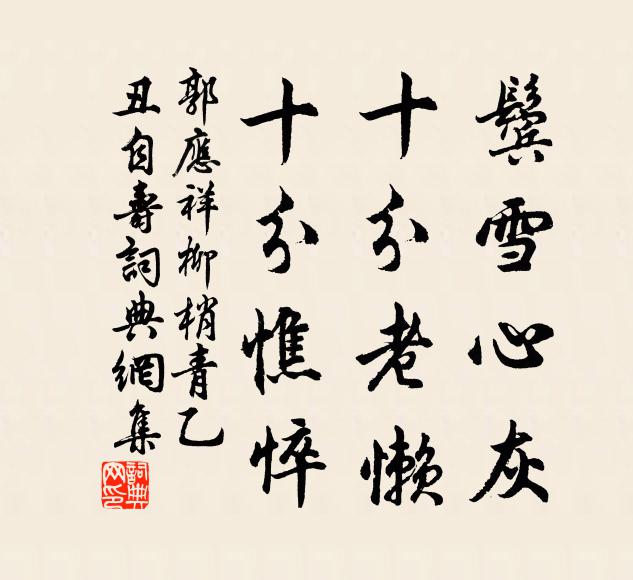 鬓雪心灰
十分老懒
十分憔悴
郭應祥柳梢青乙
丑自壽詞典網集
詞典网印